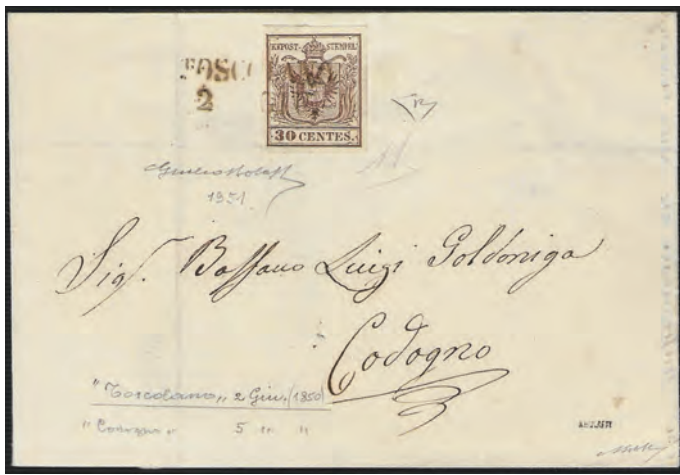 KKPOST-STEMPEL
TOSCOLANO
2
30 CENTES.
1951
Sig.r Bassano Luigi Goldoniga
Codogno
"Toscolano" 2 Giu. (1850)
"Codogno" 5 " "